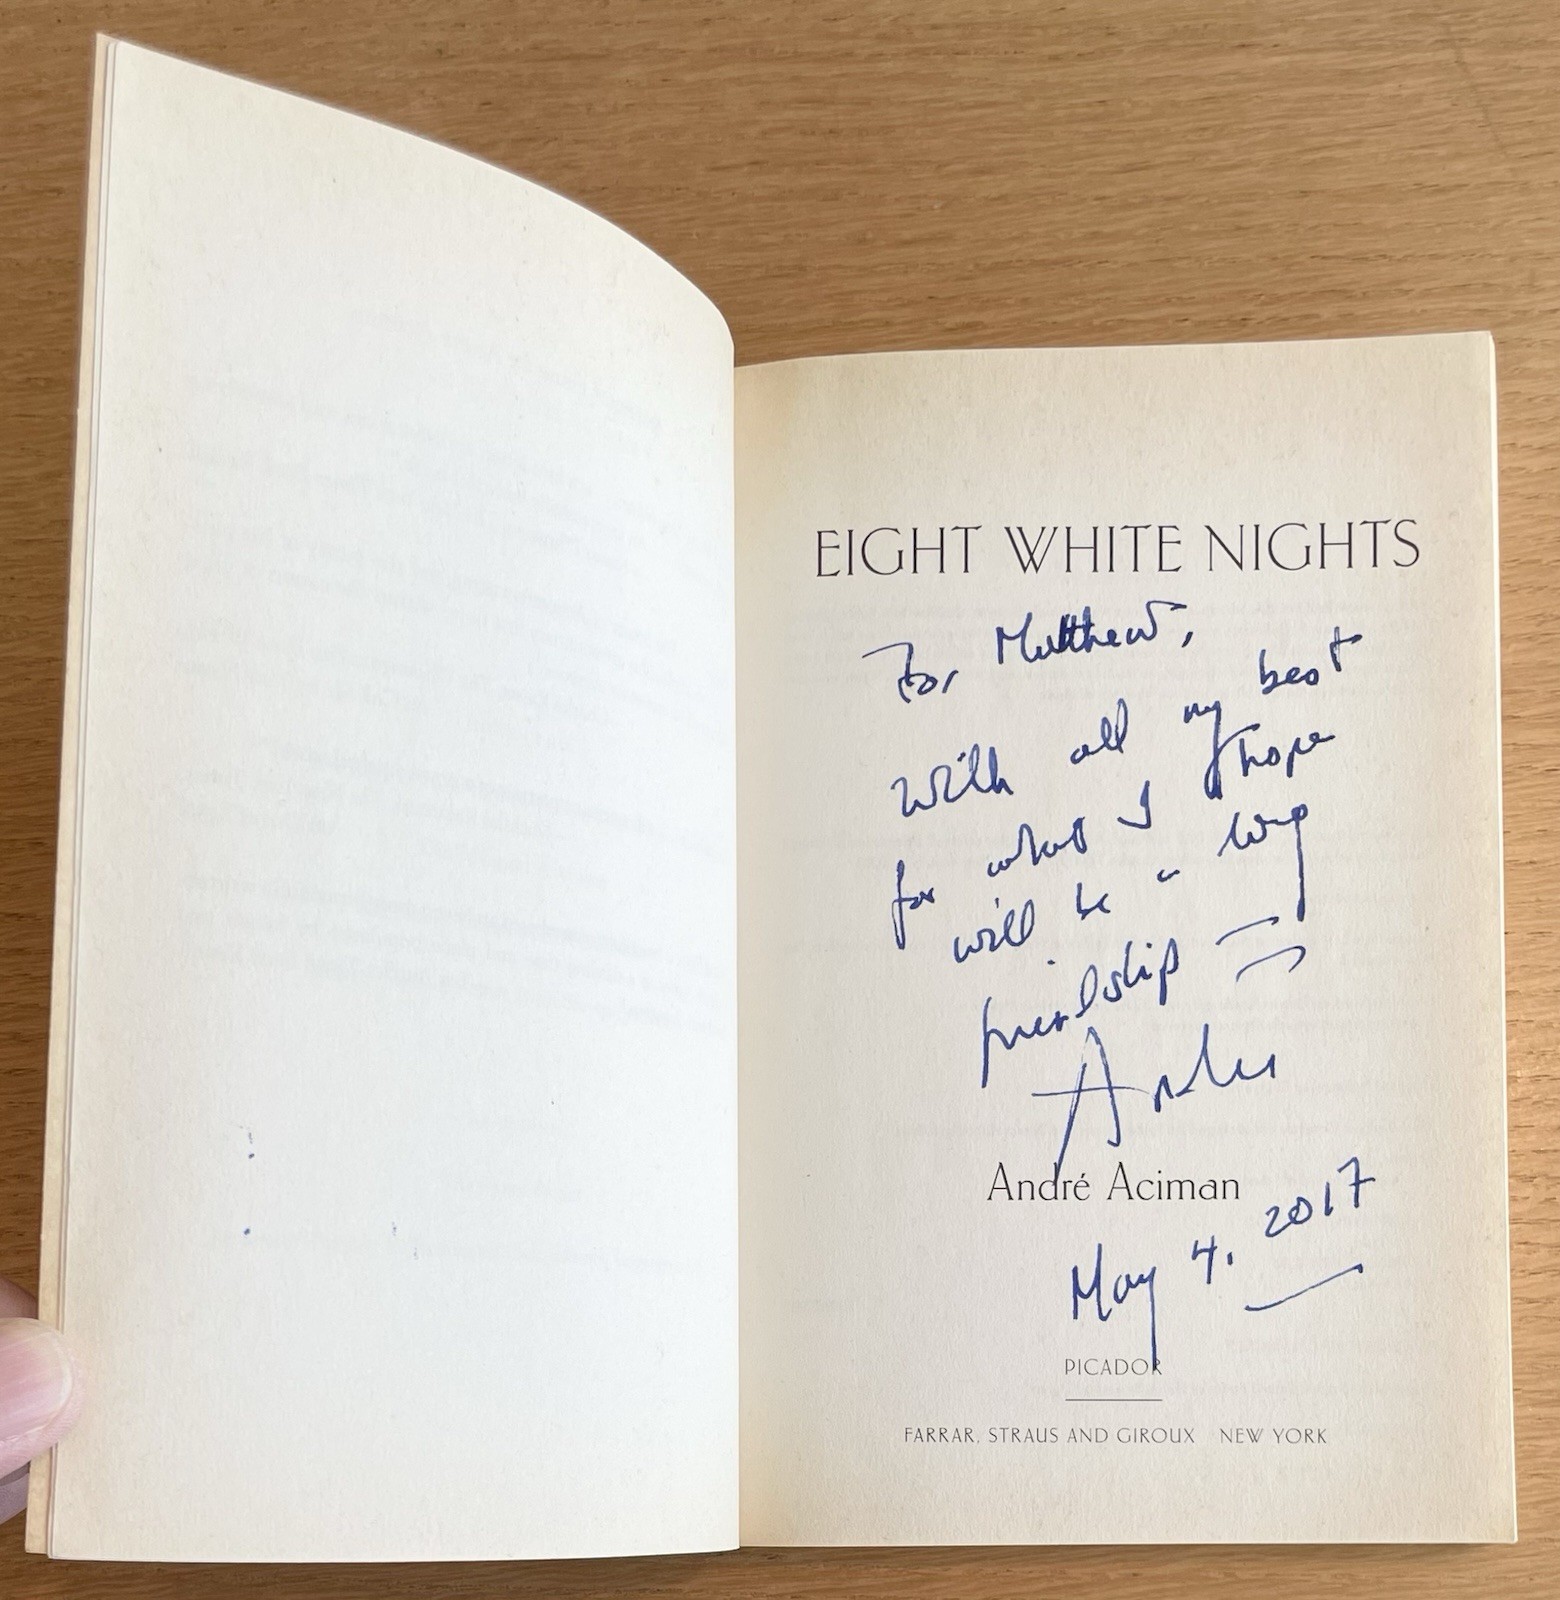 EIGHT WHITE NIGHTS
For Matthew,
With all my best
for what I hope
will be a long
friendship —
André
André Aciman
May 4, 2017
PICADOR
FARRAR, STRAUS AND GIROUX NEW YORK